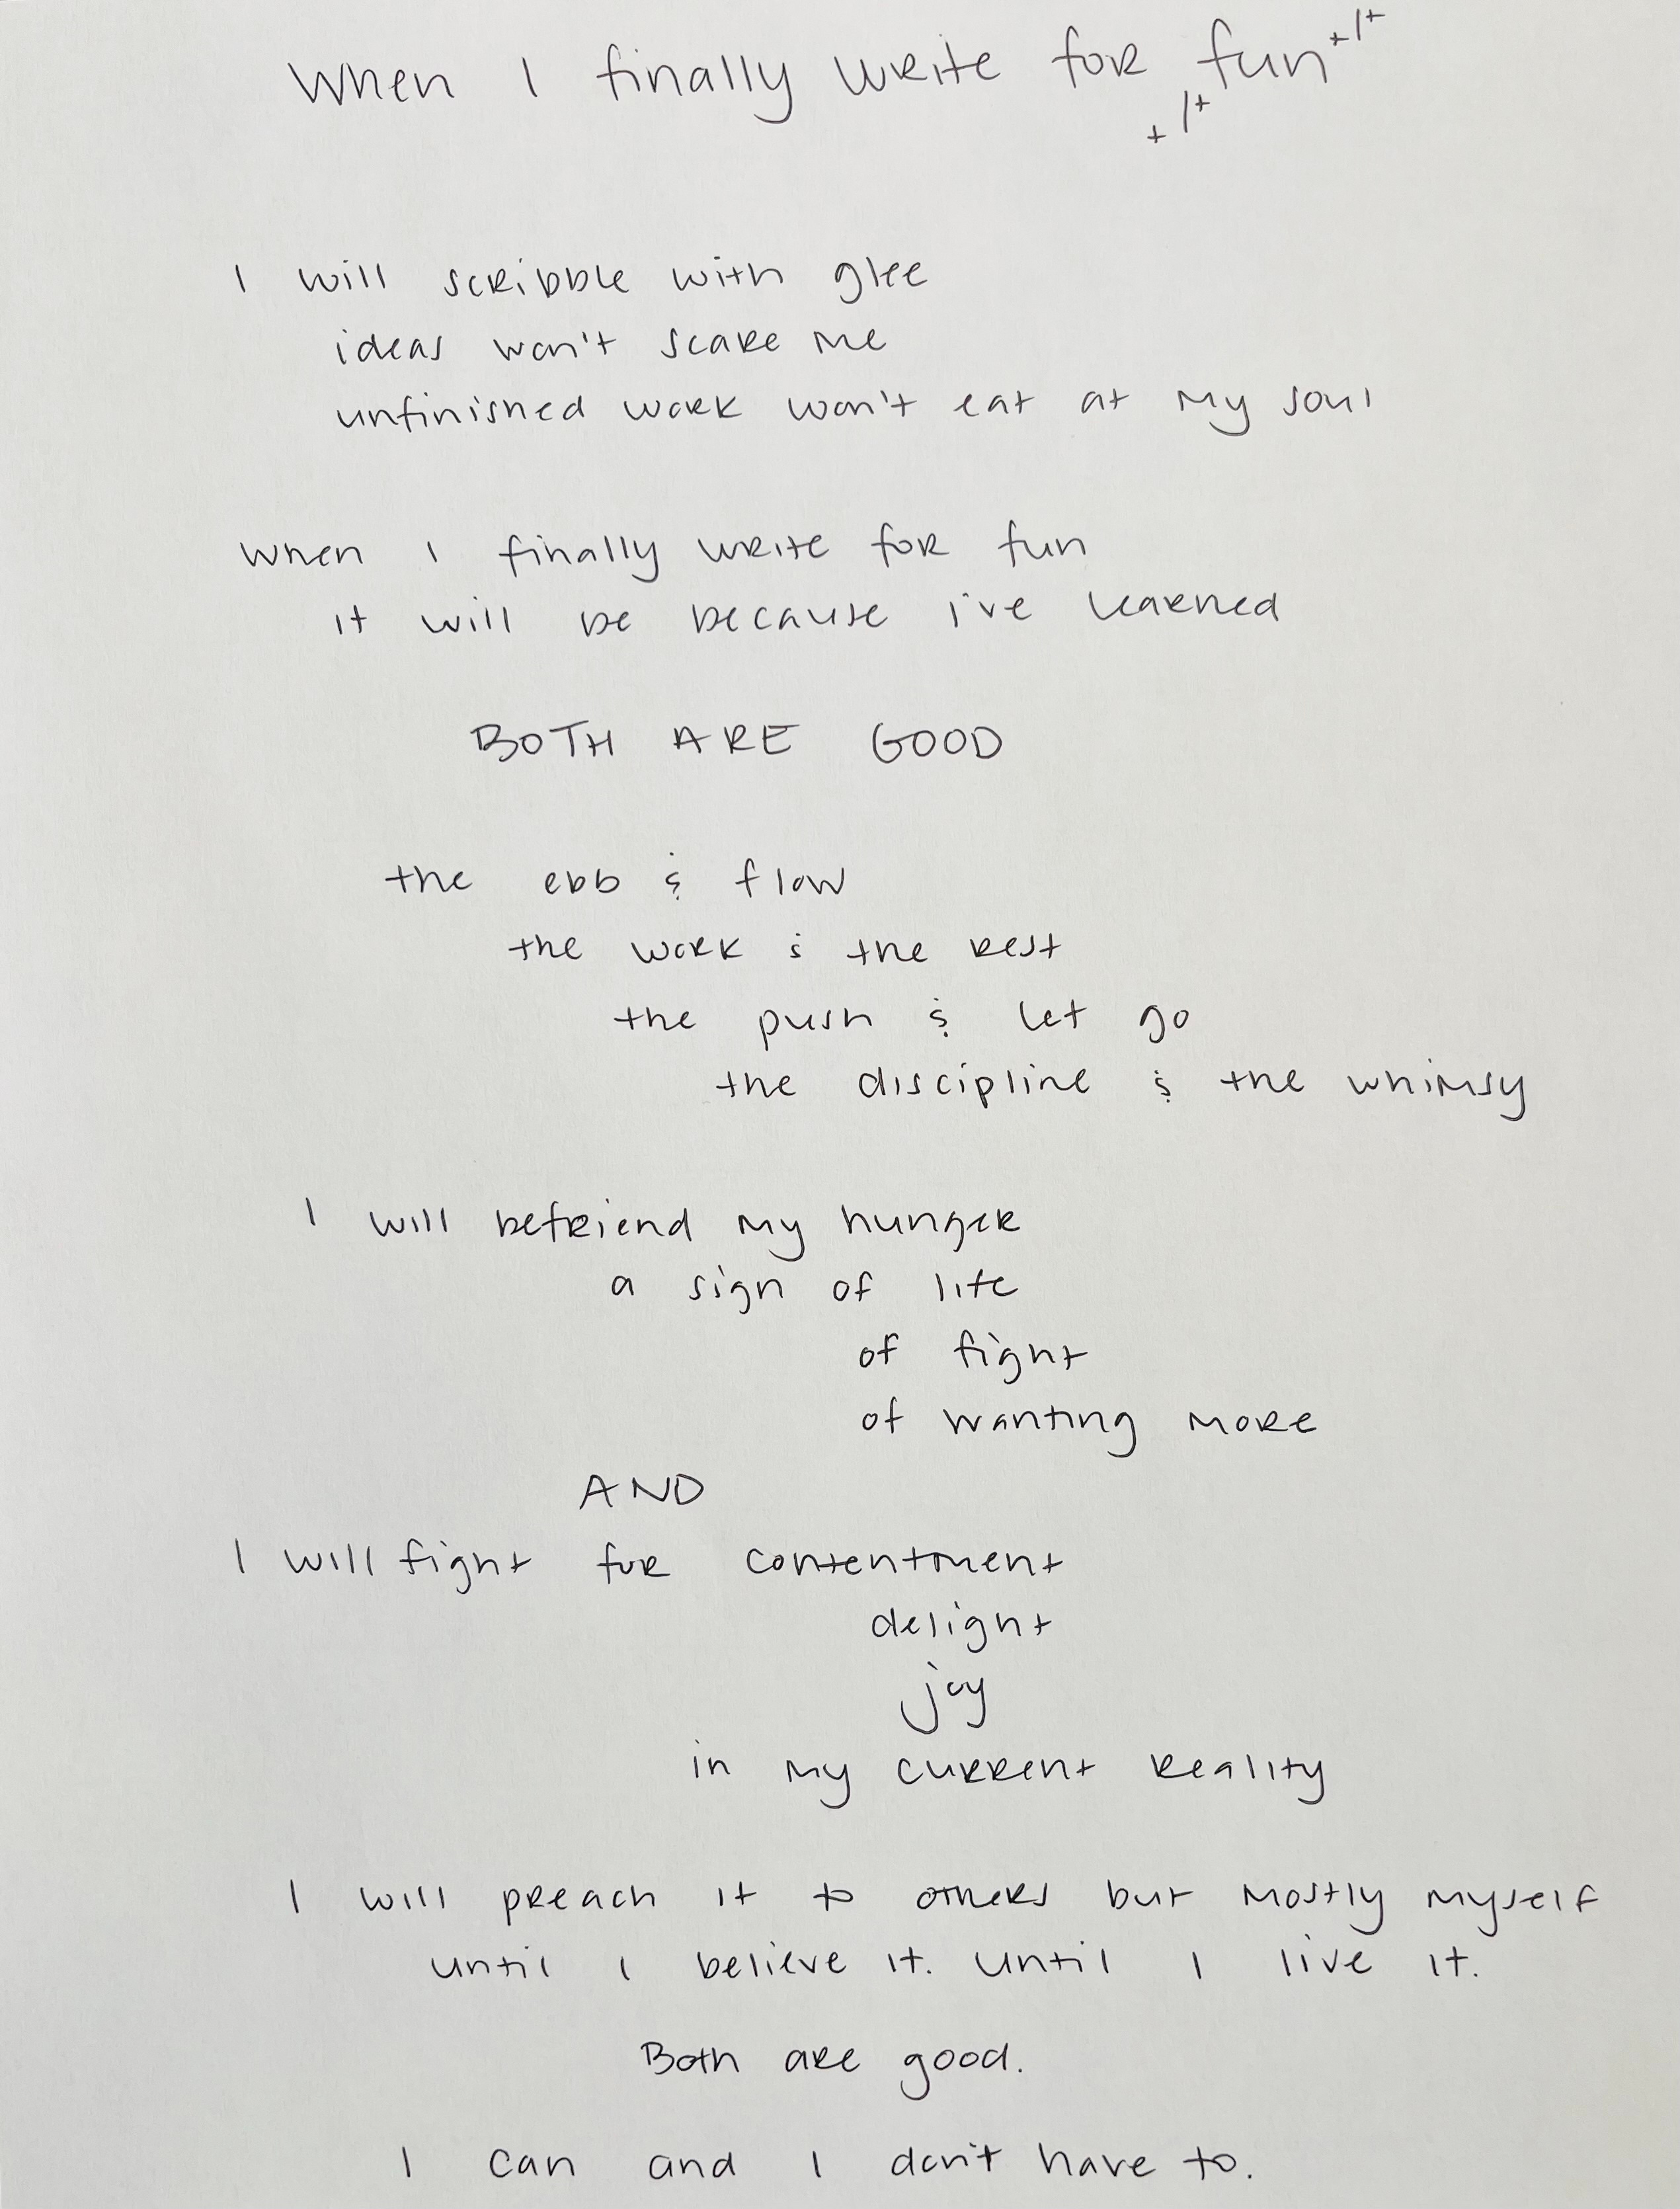 When I finally write for fun
I will scribble with glee
ideas won't scare me
unfinished work won't eat at my soul
When I finally write for fun
it will be because i've learned
BOTH ARE GOOD
the ebb & flow
the work & the rest
the push & let go
the discipline & the whimsy
I will befriend my hunger
a sign of life
of fight
of wanting more
AND
I will fight for contentment
delight
joy
in my current reality
I will preach it to others but mostly myself
until I believe it. until I live it.
Both are good.
I can and I don't have to.